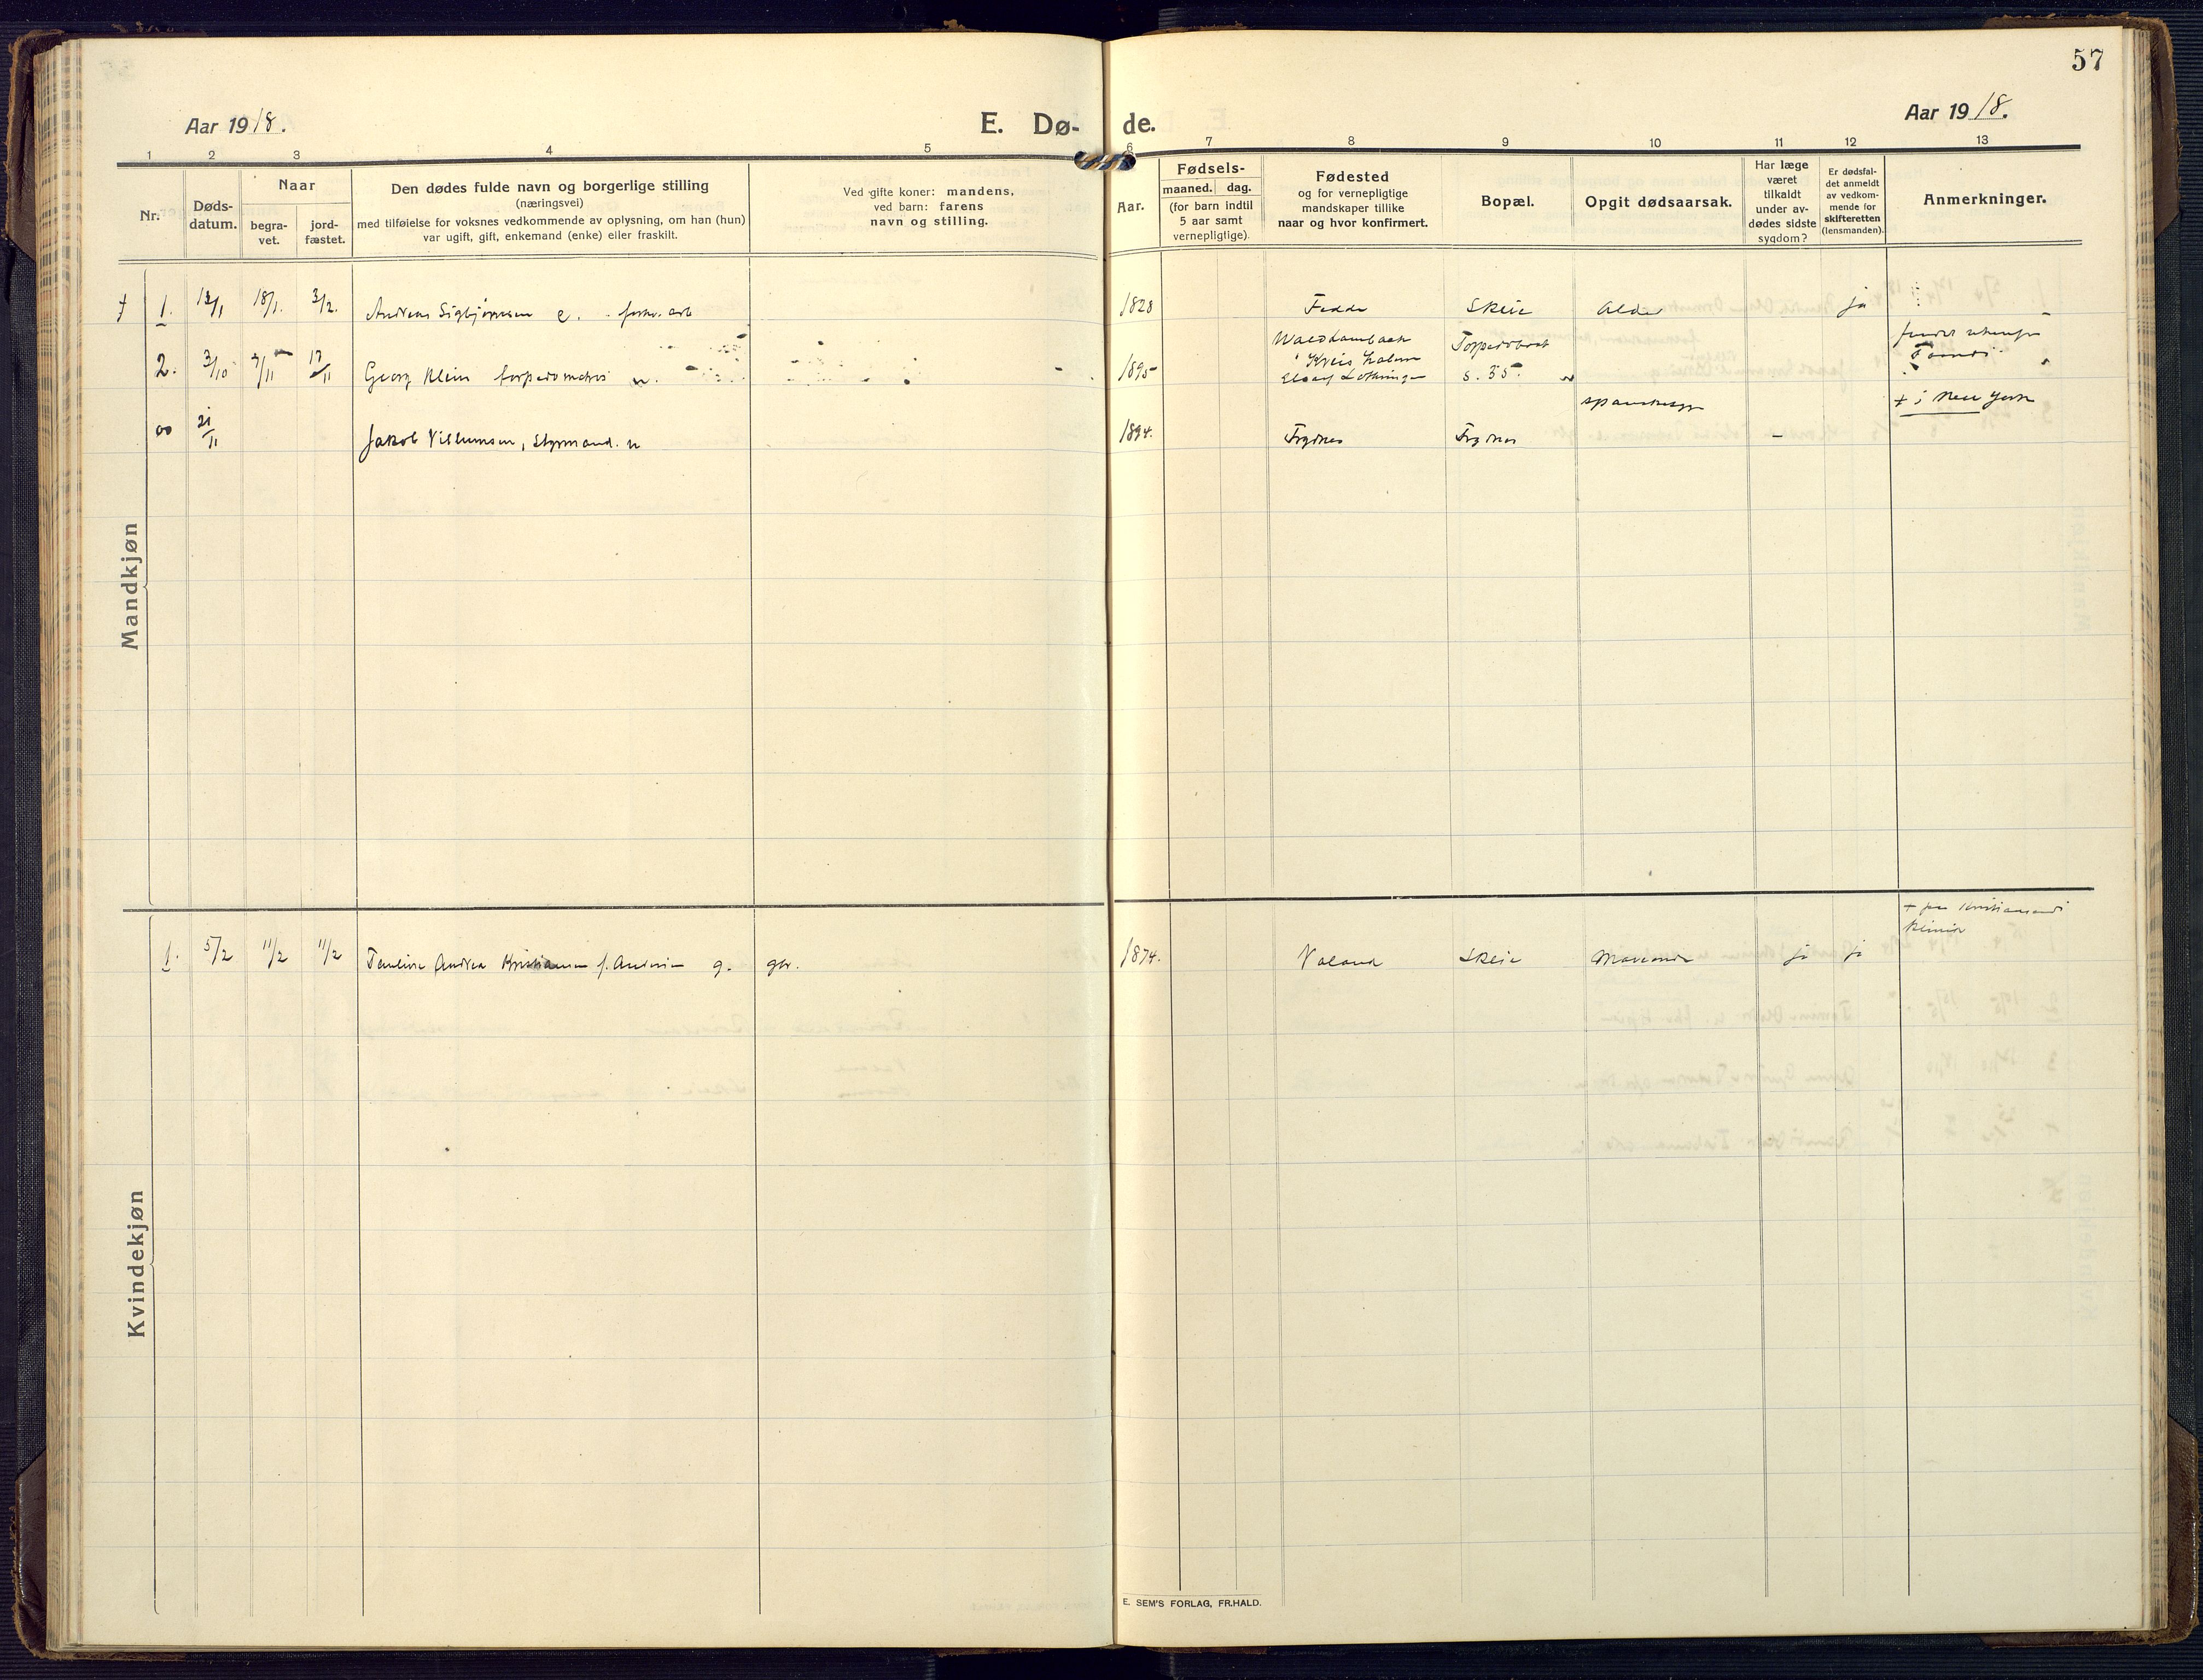 57
Aar 1918.
E. Dø-
de.
Aar 1918.
1 2 3 4 5
6 7 8 9 10 11 12 13
Nr.
Døds-
datum.
Naar
begra-
vet.
jord-
fæstet.
Den dødes fulde navn og borgerlige stilling
(næringsvei)
med tilføielse for voksnes vedkommende av oplysning, om han (hun)
var ugift, gift, enkemand (enke) eller fraskilt.
Ved gifte koner: mandens,
ved barn: farens
navn og stilling.
Aar.
Fødsels-
maaned. dag.
(for barn indtil
5 aar samt
vernepligtige).
Fødested
og for vernepligtige
mandskaper tillike
naar og hvor konfirmert.
Bopæl.
Opgit dødsaarsak.
Har læge
været
tilkaldt
under av-
dødes sidste
sygdom?
Er dødsfal-
det anmeldt
av vedkom-
mende for
skifteretten
(lensmanden).
Anmerkninger.
Mandkjøn
1. 18/1. 3/2. Andreas Sigbjørnsen e. - forhv. arb 1828 Fedde Skeie Alder ja
2. 3/10 17/11 Georg Klein torpedomatros u. 1895 Waldhambach
Kreis
Elsass Lothringen
Torpedobaat
S. 35.
00 21/11 Jakob Villumsen, Styrmand. u 1894. spanskesyge - + i New York
Kvindekjøn
1. 5/2 11/2 11/2 Andrea Kristiansen f. g. gbr. 1874. Valand Skeie ja ja + paa Kristiansands
klinik
E. SEM'S FORLAG, FR.HALD.